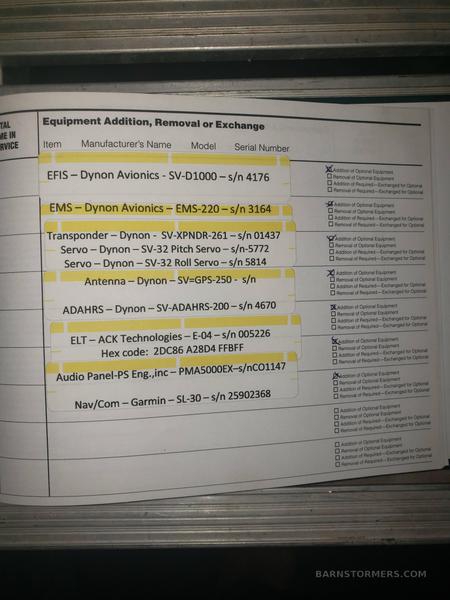 TAL
ME IN
RVICE
Equipment Addition, Removal or Exchange
Item Manufacturer's Name Model Serial Number
EFIS – Dynon Avionics - SV-D1000 – s/n 4176
EMS – Dynon Avionics – EMS-220 – s/n 3164
Transponder – Dynon - SV-XPNDR-261 – s/n 01437
Servo – Dynon – SV-32 Pitch Servo – s/n-5772
Servo – Dynon – SV-32 Roll Servo – s/n 5814
Antenna – Dynon – SV=GPS-250 - s/n
ADAHRS – Dynon – SV-ADAHRS-200 – s/n 4670
ELT – ACK Technologies – E-04 – s/n 005226
Hex code: 2DC86 A28D4 FFBFF
Audio Panel-PS Eng.,inc – PMA5000EX–s/nCO1147
Nav/Com – Garmin – SL-30 – s/n 25902368
Addition of Optional Equipment
Removal of Optional Equipment
Addition of Required – Exchanged for Optional
Removal of Required – Exchanged for Optional
Addition of Optional Equipment
Removal of Optional Equipment
Addition of Required – Exchanged for Optional
Removal of Required – Exchanged for Optional
Addition of Optional Equipment
Removal of Optional Equipment
Addition of Required – Exchanged for Optional
Removal of Required – Exchanged for Optional
Addition of Optional Equipment
Removal of Optional Equipment
Addition of Required – Exchanged for Optional
Removal of Required – Exchanged for Optional
Addition of Optional Equipment
Removal of Optional Equipment
Addition of Required – Exchanged for Optional
Removal of Required – Exchanged for Optional
Addition of Optional Equipment
Removal of Optional Equipment
Addition of Required – Exchanged for Optional
Removal of Required – Exchanged for Optional
Addition of Optional Equipment
Removal of Optional Equipment
Addition of Required – Exchanged for Optional
Removal of Required – Exchanged for Optional
Addition of Optional Equipment
Removal of Optional Equipment
Addition of Required – Exchanged for Optional
Removal of Required – Exchanged for Optional
Addition of Optional Equipment
Removal of Optional Equipment
Addition of Required – Exchanged for Optional
Removal of Required – Exchanged for Optional
BARNSTORMERS.COM